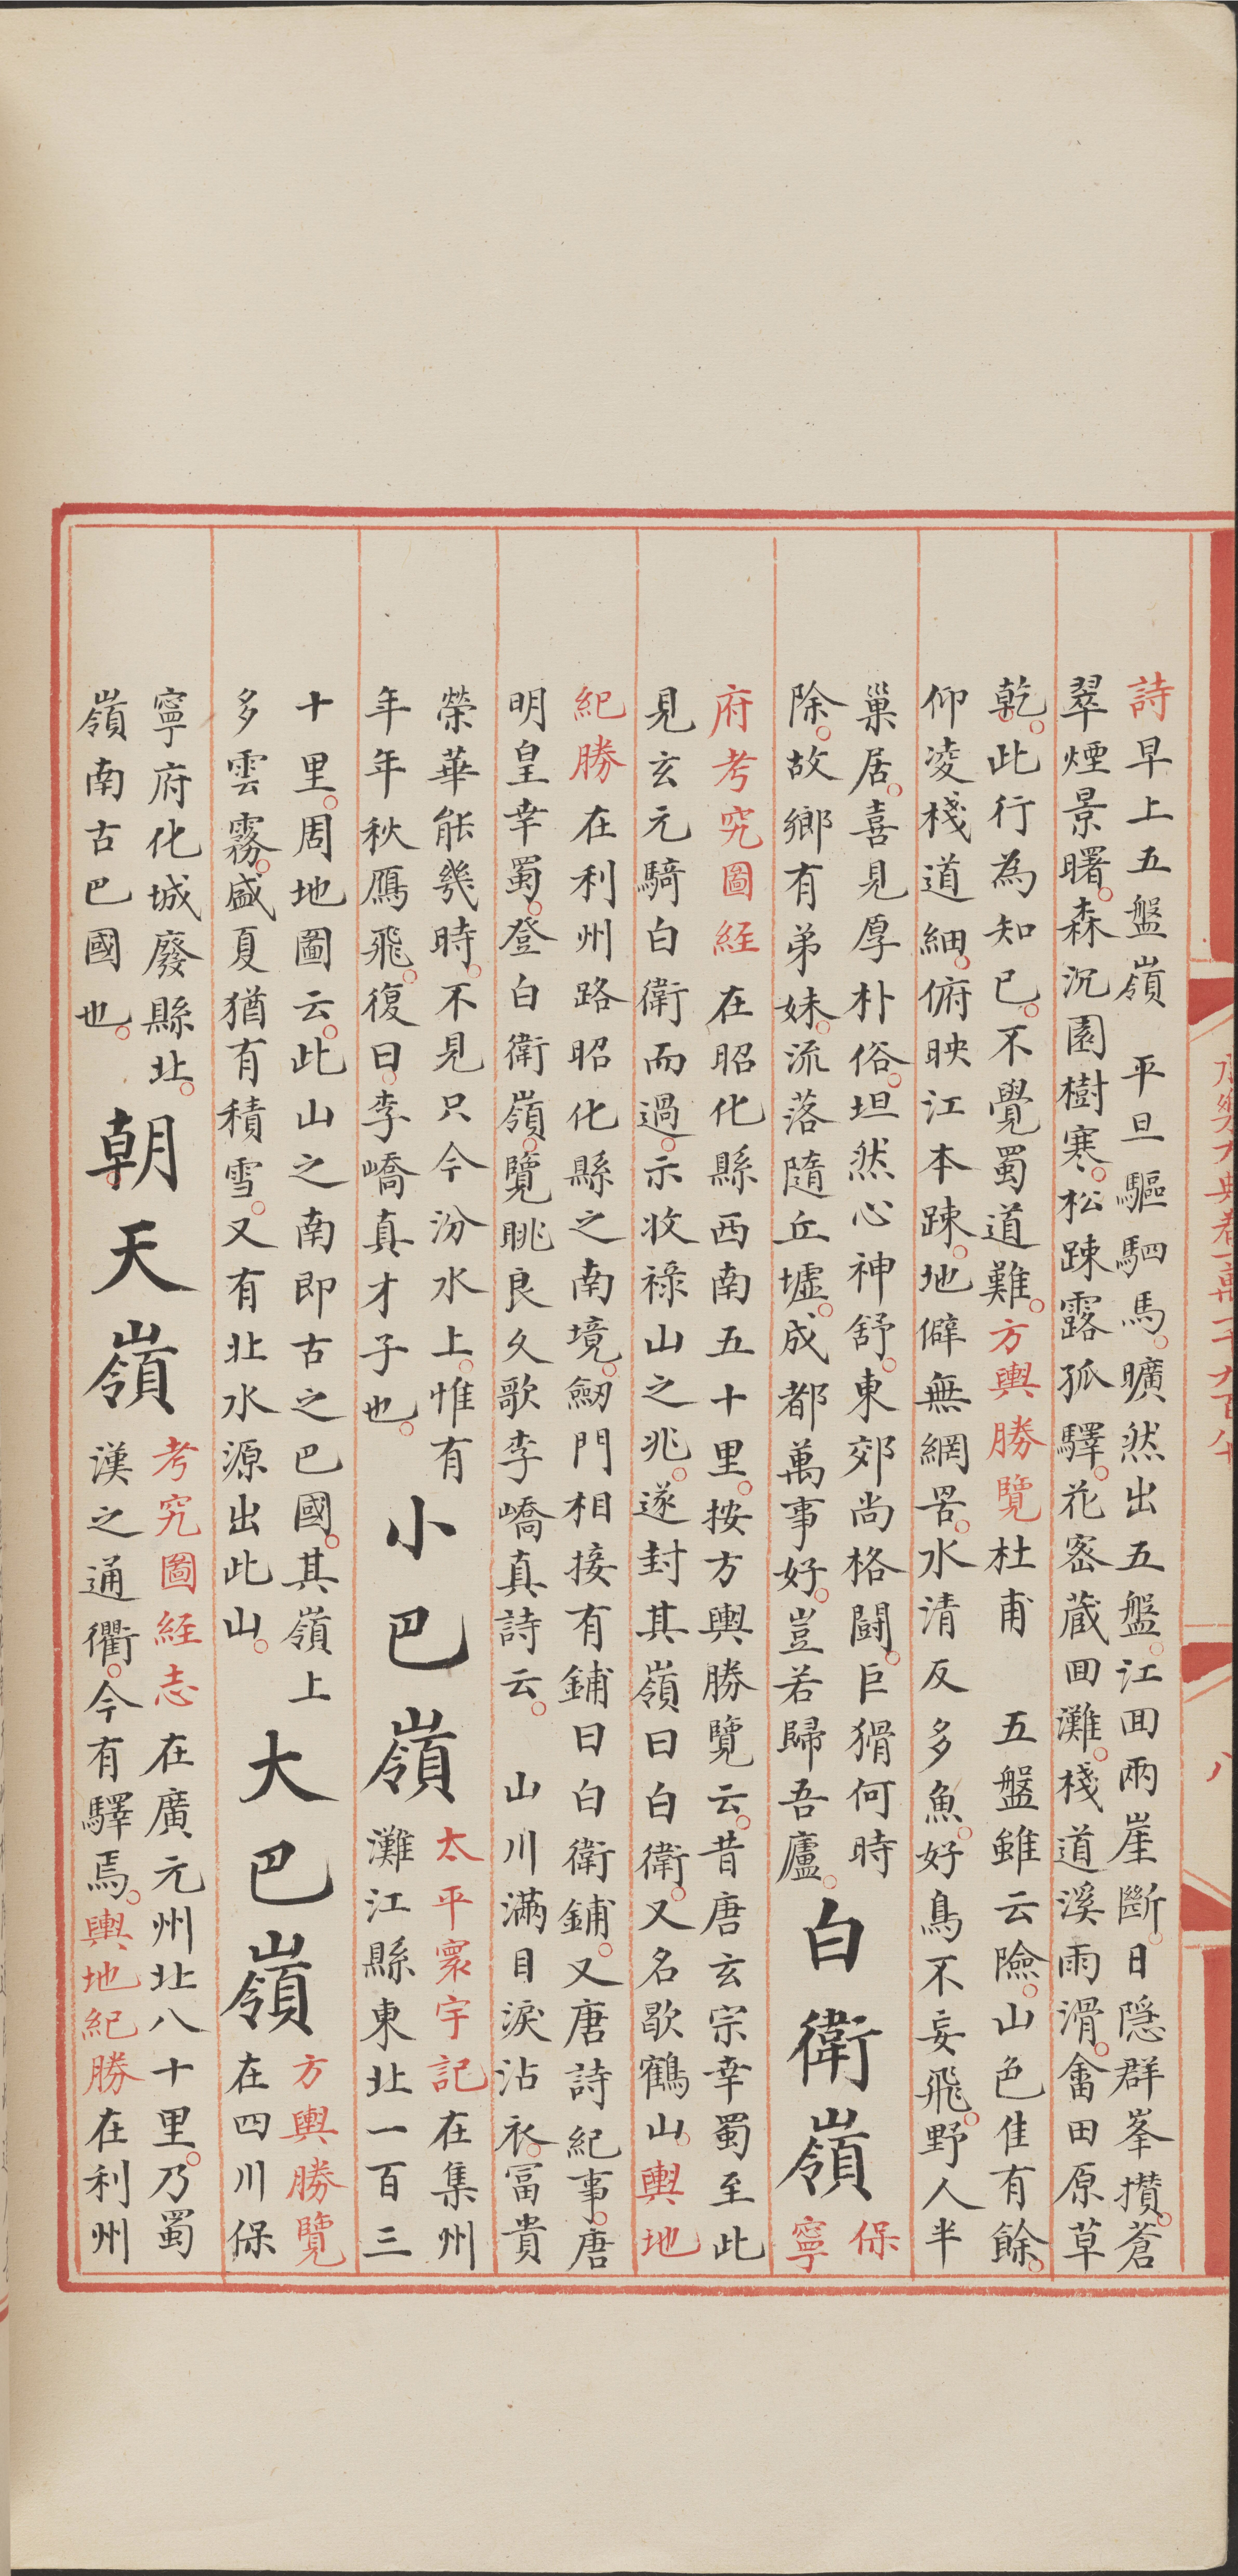 詩早上五盤嶺　平旦驅駟馬。曠然出五盤。江回兩崖斷。日隱群峯攅。蒼
翠煙景曙。森沉園樹寒。松踈露孤驛。花宻藏回灘。棧道溪雨滑。畬田原草
乾。此行為知已。不覺蜀道難。方輿勝覽杜甫　五盤雖云險。山色佳有餘。
仰凌棧道細。俯映江本踈。地僻無網罟。水清反多魚。好鳥不妄飛。野人半
巢居。喜見厚朴俗。坦然心神舒。東郊尚格鬪。巨猾何時
除。故鄉有弟妹。流落隨丘墟。成都萬事好。豈若歸吾廬。
白衛嶺
保
寧
府考究圖経在昭化縣西南五十里。按方輿勝覽云。昔唐玄宗幸蜀至此
見玄元騎白衛而過。示收祿山之兆。遂封其嶺曰白衛。又名歇鶴山。輿地
紀勝在利州路昭化縣之南境。劒門相接有鋪曰白衛鋪。又唐詩紀事。唐
明皇幸蜀。登白衛嶺。覽眺良久歌李嶠真詩云。　山川滿目淚沾衣。冨貴
榮華能幾時。不見只今汾水上。惟有
年年秋鴈飛。復曰。李嶠真才子也。
小巴嶺
太平寰宇記在集州
灘江縣東北一百三
十里。周地圖云。此山之南即古之巴國。其嶺上
多雲霧。盛夏猶有積雪。又有北水源出此山。
大巴嶺
方輿勝覽
在四川保
寧府化城廢縣北。
嶺南古巴國也。
朝天嶺
考究圖経志在廣元州北八十里。乃蜀
漢之通衢。今有驛焉。輿地紀勝在利州
八